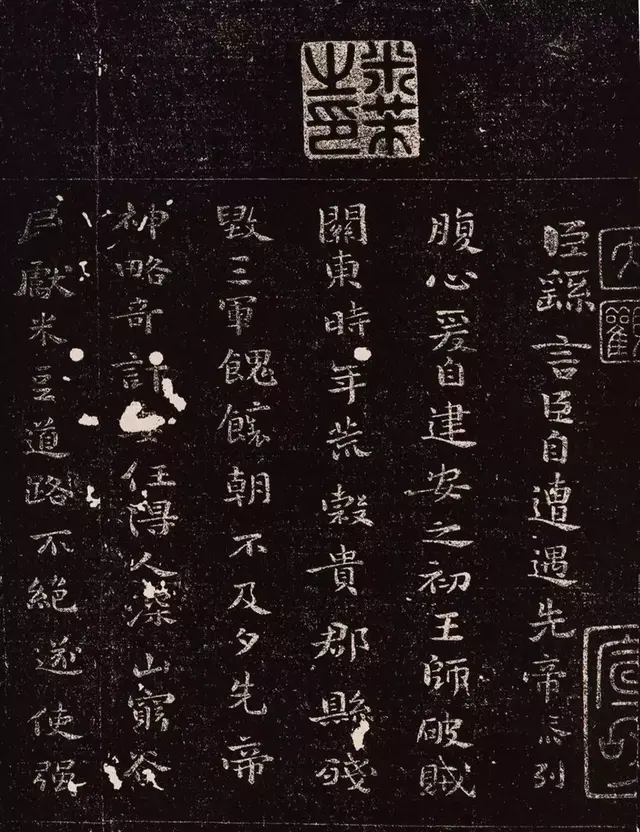 米芾
之印
大觀
臣繇言臣自遭遇先帝忝列
腹心爰自建安之初王師破賊
關東時年荒穀貴郡縣殘
毀三軍餽饟朝不及夕先帝
神略奇計委任得人深山窮谷
民獻米豆道路不絕遂使强